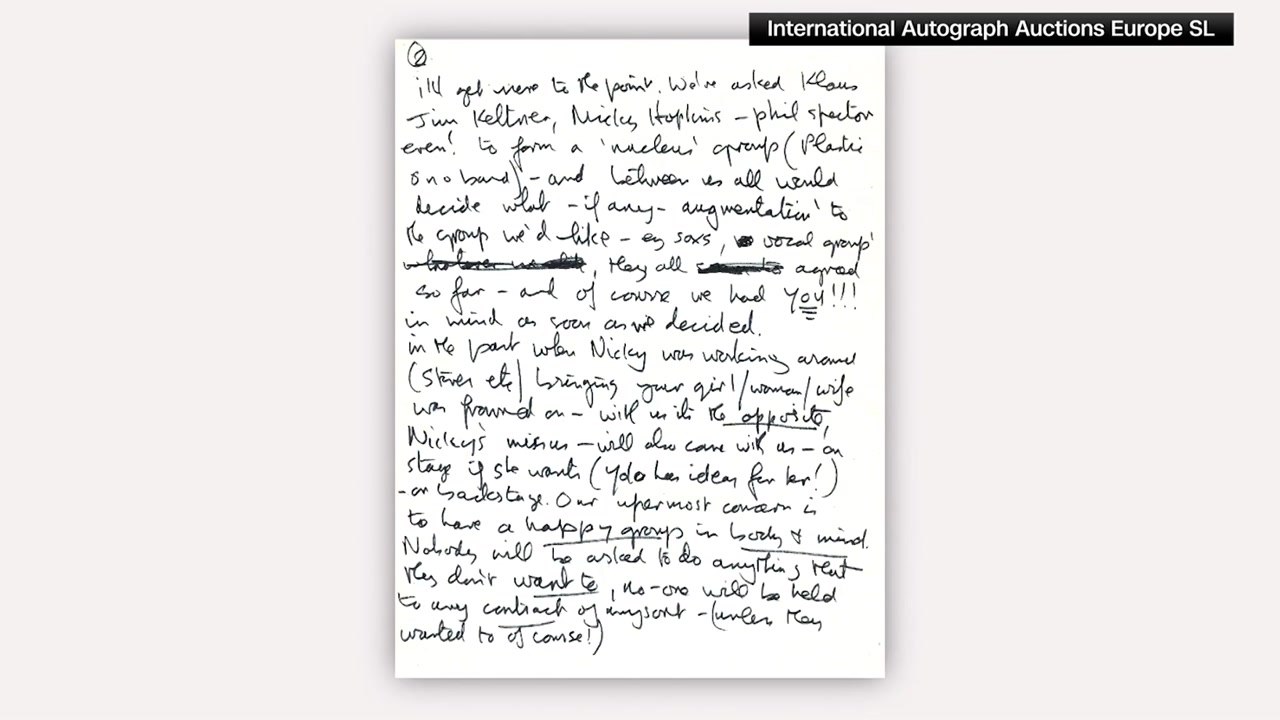 International Autograph Auctions Europe SL
2
i'll get more to the point. We've asked Klaus
Jim Keltner, Nicky Hopkins – phil spector
even! to form a 'nucleus' group (Plastic
ono band) – and between us all would
decide what – if any – augmentation' to
the group we'd like – eg saxs, vocal group'
, they all agreed
so far – and of course we had YOU!!!
in mind as soon as we decided.
in the past when Nicky was working around
(Stones etc) bringing your girl/woman/wife
was frowned on – with us its the opposite,
Nicky's missus – will also come with us – on
stage if she wants (Yoko has ideas for her!)
– or backstage. Our uppermost concern is
to have a happy group in body & mind.
Nobody will be asked to do anything that
they don't want to, no-one will be held
to any contract of anysort – (unless they
wanted to of course!)